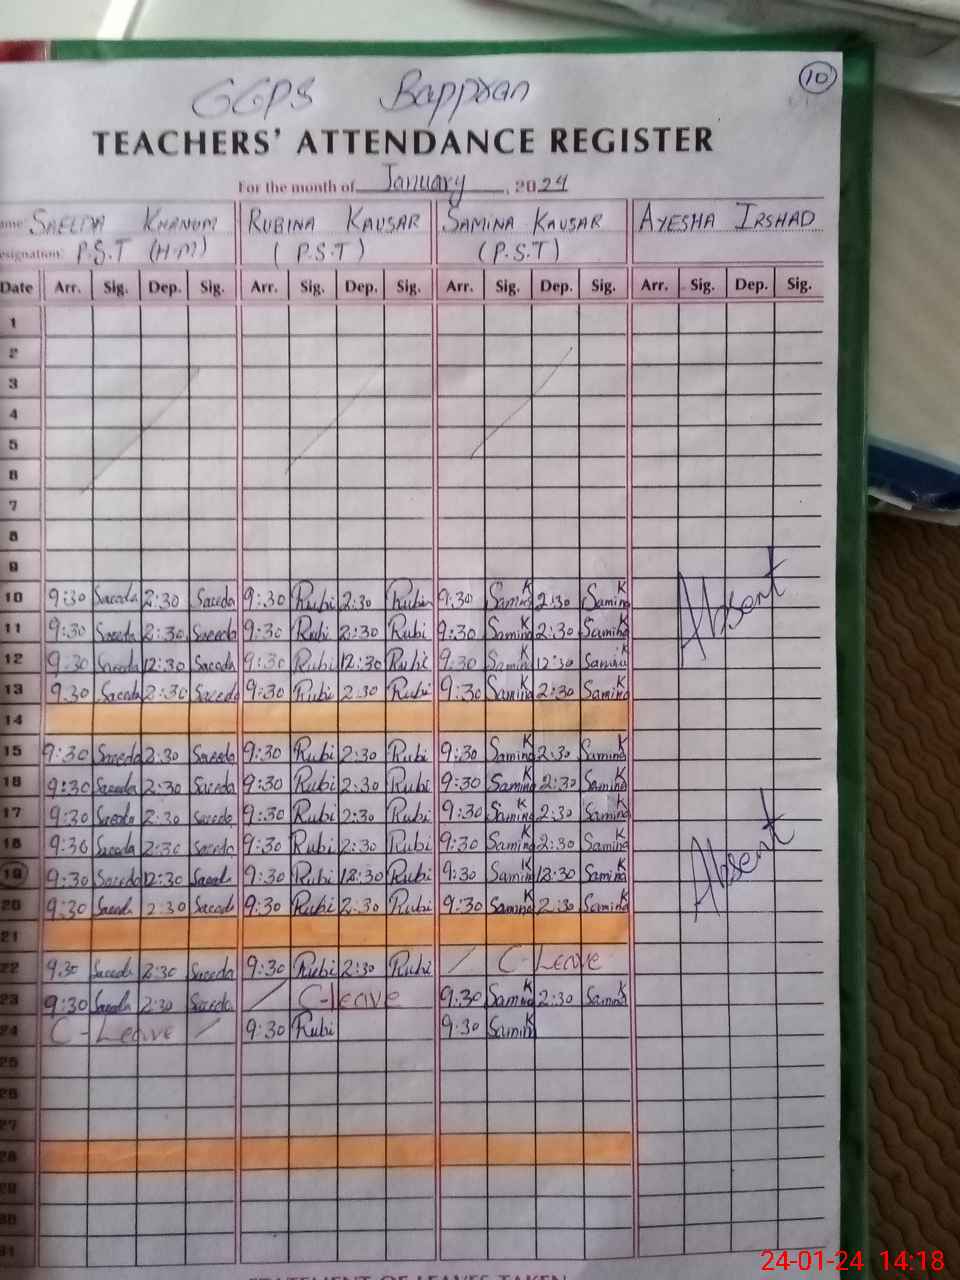 10
GGPS Bappran
TEACHERS' ATTENDANCE REGISTER
For the month of January, 2024
ame: SAEEDA KHANUM RUBINA KAUSAR SAMINA KAUSAR AYESHA IRSHAD
esignation: P.S.T (H.M) (P.S.T) (P.S.T)
Date Arr. Sig. Dep. Sig. Arr. Sig. Dep. Sig. Arr. Sig. Dep. Sig. Arr. Sig. Dep. Sig.
1
2
3
4
5
6
7
8
9
10 9:30 Saeeda 2:30 Saeeda 9:30 Rubi 2:30 Rubina 9:30 Samina K 2:30 Samina K
11 9:30 Saeeda 2:30 Saeeda 9:30 Rubi 2:30 Rubi 9:30 Samina K 2:30 Samina K
Absent
12 9:30 Saeeda 12:30 Saeeda 9:30 Rubi 12:30 Rubi 9:30 Samina K 12:30 Samina K
13 9.30 Saeeda 2:30 Saeeda 9:30 Rubi 2:30 Rubi 9:30 Samina K 2:30 Samina K
14
15 9:30 Saeeda 2:30 Saeeda 9:30 Rubi 2:30 Rubi 9:30 Samina K 2:30 Samina K
16 9:30 Saeeda 2:30 Saeeda 9:30 Rubi 2:30 Rubi 9:30 Samina K 2:30 Samina K
17 9:30 Saeeda 2:30 Saeeda 9:30 Rubi 2:30 Rubi 9:30 Samina K 2:30 Samina K
18 9:30 Saeeda 2:30 Saeeda 9:30 Rubi 2:30 Rubi 9:30 Samina K 2:30 Samina K
Absent
19 9:30 Saeeda 12:30 Saeeda 9:30 Rubi 12:30 Rubi 9:30 Samina K 12:30 Samina K
20 9:30 Saeeda 2:30 Saeeda 9:30 Rubi 2:30 Rubi 9:30 Samina K 2:30 Samina K
21
22 9.30 Saeeda 2:30 Saeeda 9:30 Rubi 2:30 Rubi / C-Leave
23 9:30 Saeeda 2:30 Saeeda / C-leave 9:30 Samina K 2:30 Samina K
24 C-Leave / 9:30 Rubi 9:30 Samina K
25
26
27
28
29
30
31
STATEMENT OF LEAVES TAKEN
24-01-24 14:18